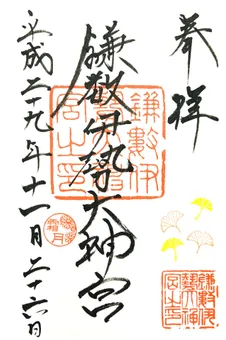 奉拝
鎌数伊勢大神宮
平成二十九年十一月二十六日
鎌數伊
勢大神
宮之印